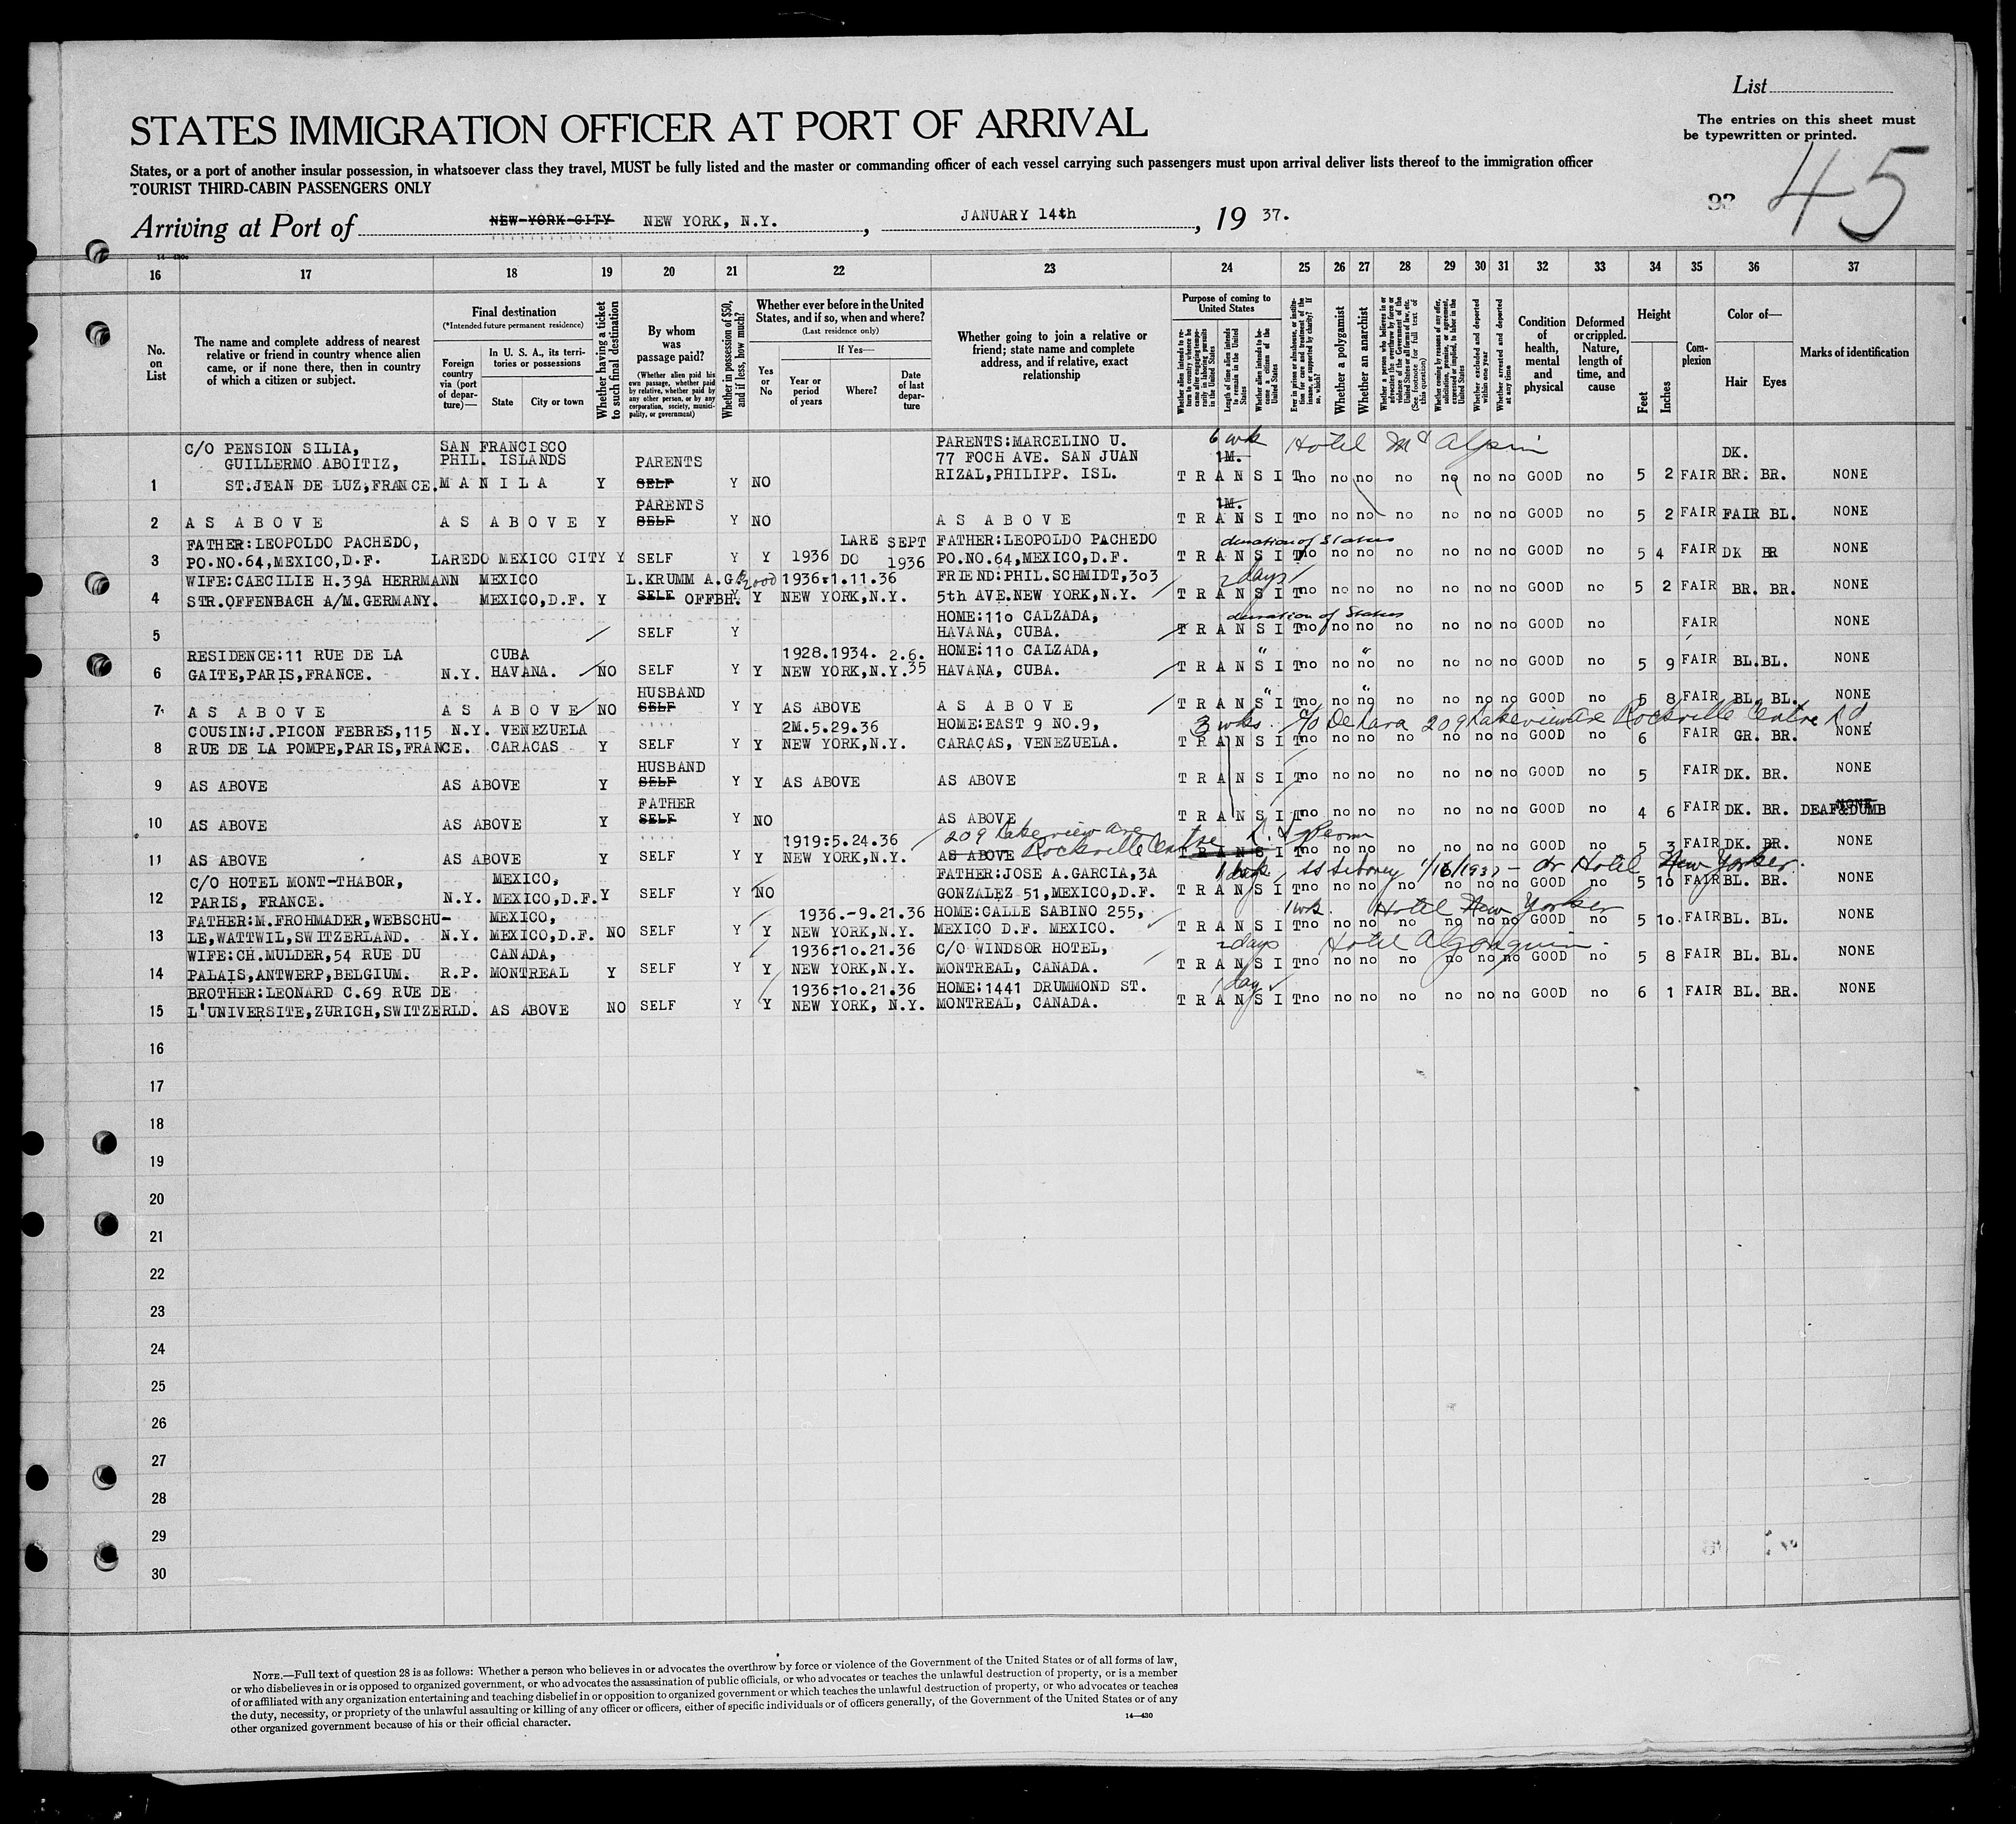 List
STATES IMMIGRATION OFFICER AT PORT OF ARRIVAL
The entries on this sheet must
be typewritten or printed.
States, or a port of another insular possession, in whatsoever class they travel, MUST be fully listed and the master or commanding officer of each vessel carrying such passengers must upon arrival deliver lists thereof to the immigration officer
TOURIST THIRD-CABIN PASSENGERS ONLY
45
Arriving at Port of NEW YORK CITY NEW YORK, N.Y., JANUARY 14th, 19 37.
16 17 18 19 20 21 22 23 24 25 26 27 28 29 30 31 32 33 34 35 36 37
No. on List
The name and complete address of nearest relative or friend in country whence alien came, or if none there, then in country of which a citizen or subject.
Final destination
(*Intended future permanent residence)
Foreign country via (port of departure)—
In U. S. A., its territories or possessions
State City or town
Whether having a ticket to such final destination
By whom was passage paid?
(Whether alien paid his own passage, whether paid by relative, whether paid by any other person, or by any corporation, society, municipality, or government)
Whether in possession of $50, and if less, how much?
Whether ever before in the United States, and if so, when and where?
(Last residence only)
Yes or No
If Yes—
Year or period of years
Where?
Date of last departure
Whether going to join a relative or friend; state name and complete address, and if relative, exact relationship
Purpose of coming to United States
Whether alien intends to return to country whence he came after engaging temporarily in laboring pursuits in the United States
Length of time alien intends to remain in the United States
Whether alien intends to become a citizen of the United States
Ever in prison or almshouse, or institution for care and treatment of the insane, or supported by charity? If so, which?
Whether a polygamist
Whether an anarchist
Whether a person who believes in or advocates the overthrow by force or violence of the Government of the United States or all forms of law, etc. (See footnote for full text of this question)
Whether coming by reasons of any offer, solicitation, promise, or agreement, expressed or implied, to labor in the United States
Whether excluded and deported within one year
Whether arrested and deported at any time
Condition of health, mental and physical
Deformed or crippled. Nature, length of time, and cause
Height
Feet Inches
Complexion
Color of—
Hair Eyes
Marks of identification
C/O PENSION SILIA, SAN FRANCISCO PARENTS:MARCELINO U. 6 wk Hotel McAlpin
GUILLERMO ABOITIZ, PHIL. ISLANDS PARENTS 77 FOCH AVE. SAN JUAN 1M. DK.
1 ST.JEAN DE LUZ,FRANCE. MANILA Y SELF Y NO RIZAL,PHILIPP. ISL. TRANSIT no no no no no no no GOOD no 5 2 FAIR BR. BR. NONE
PARENTS 1M.
2 AS ABOVE AS ABOVE Y SELF Y NO AS ABOVE TRANSIT no no no no no no no GOOD no 5 2 FAIR FAIR BL. NONE
FATHER:LEOPOLDO PACHEDO, LARE SEPT FATHER:LEOPOLDO PACHEDO duration of Status
3 PO.NO.64,MEXICO,D.F. LAREDO MEXICO CITY Y SELF Y Y 1936 DO 1936 PO.NO.64,MEXICO,D.F. TRANSIT no no no no no no no GOOD no 5 4 FAIR DK BR NONE
WIFE:CAECILIE H.39A HERRMANN MEXICO L.KRUMM A.G. 2000 1936:1.11.36 FRIEND:PHIL.SCHMIDT,3o3 2 days
4 STR.OFFENBACH A/M.GERMANY. MEXICO,D.F. Y SELF OFFBH. Y Y NEW YORK,N.Y. 5th AVE.NEW YORK,N.Y. TRANSIT no no no no no no no GOOD no 5 2 FAIR BR. BR. NONE
HOME:11o CALZADA, duration of Status
5 SELF Y HAVANA, CUBA. TRANSIT no no no no no no no GOOD no FAIR NONE
RESIDENCE:11 RUE DE LA CUBA 1928.1934. 2.6. HOME:11o CALZADA, " "
6 GAITE,PARIS,FRANCE. N.Y. HAVANA. NO SELF Y Y NEW YORK,N.Y.35 HAVANA, CUBA. TRANSIT no no no no no no no GOOD no 5 9 FAIR BL.BL. NONE
HUSBAND " "
7 AS ABOVE AS ABOVE NO SELF Y Y AS ABOVE AS ABOVE TRANSIT no no no no no no no GOOD no 5 8 FAIR BL. BL. NONE
COUSIN:J.PICON FEBRES,115 N.Y. VENEZUELA 2M.5.29.36 HOME:EAST 9 NO.9, 3 wks. c/o De Lara 209 Lakeview Ave Rockville Centre
8 RUE DE LA POMPE,PARIS,FRANCE. CARACAS Y SELF Y Y NEW YORK,N.Y. CARACAS, VENEZUELA. TRANSIT no no no no no no no GOOD no 6 FAIR GR. BR. NONE
HUSBAND
9 AS ABOVE AS ABOVE Y SELF Y Y AS ABOVE AS ABOVE TRANSIT no no no no no no no GOOD no 5 FAIR DK. BR. NONE
FATHER NONE
10 AS ABOVE AS ABOVE Y SELF Y NO AS ABOVE TRANSIT no no no no no no no GOOD no 4 6 FAIR DK. BR. DEAF&DUMB
1919:5.24.36 209 Lakeview Ave
11 AS ABOVE AS ABOVE Y SELF Y Y NEW YORK,N.Y. AS ABOVE Rockville Centre TRANSIT no no no no no no no GOOD no 5 3 FAIR DK. BR. NONE
C/O HOTEL MONT-THABOR, MEXICO, FATHER:JOSE A.GARCIA,3A SS Siboney 1/16/1937 - or Hotel New Yorker.
12 PARIS, FRANCE. N.Y. MEXICO,D.F. Y SELF Y NO GONZALEZ 51,MEXICO,D.F. TRANSIT no no no no no no no GOOD no 5 10 FAIR BL. BR. NONE
FATHER:M.FROHMADER,WEBSCHU- MEXICO, 1936.-9.21.36 HOME:CALLE SABINO 255, 1 wk. Hotel New Yorker
13 LE,WATTWIL,SWITZERLAND. N.Y. MEXICO,D.F. NO SELF Y Y NEW YORK,N.Y. MEXICO D.F. MEXICO. TRANSIT no no no no no no no GOOD no 5 1o FAIR BL. BL. NONE
WIFE:CH.MULDER,54 RUE DU CANADA, 1936:1o.21.36 C/O WINDSOR HOTEL, 2 days Hotel Algonquin.
14 PALAIS,ANTWERP,BELGIUM. R.P. MONTREAL Y SELF Y Y NEW YORK,N.Y. MONTREAL, CANADA. TRANSIT no no no no no no no GOOD no 5 8 FAIR BL. BL. NONE
BROTHER:LEONARD C.69 RUE DE 1936:1o.21.36 HOME:1441 DRUMMOND ST. 1 day
15 L'UNIVERSITE,ZURICH,SWITZERLD. AS ABOVE NO SELF Y Y NEW YORK, N.Y. MONTREAL, CANADA. TRANSIT no no no no no no no GOOD no 6 1 FAIR BL. BR. NONE
16
17
18
19
20
21
22
23
24
25
26
27
28
29
30
NOTE.—Full text of question 28 is as follows: Whether a person who believes in or advocates the overthrow by force or violence of the Government of the United States or of all forms of law,
or who disbelieves in or is opposed to organized government, or who advocates the assassination of public officials, or who advocates or teaches the unlawful destruction of property, or is a member
of or affiliated with any organization entertaining and teaching disbelief in or opposition to organized government or which teaches the unlawful destruction of property, or who advocates or teaches
the duty, necessity, or propriety of the unlawful assaulting or killing of any officer or officers, either of specific individuals or of officers generally, of the Government of the United States or of any
other organized government because of his or their official character.
14—430